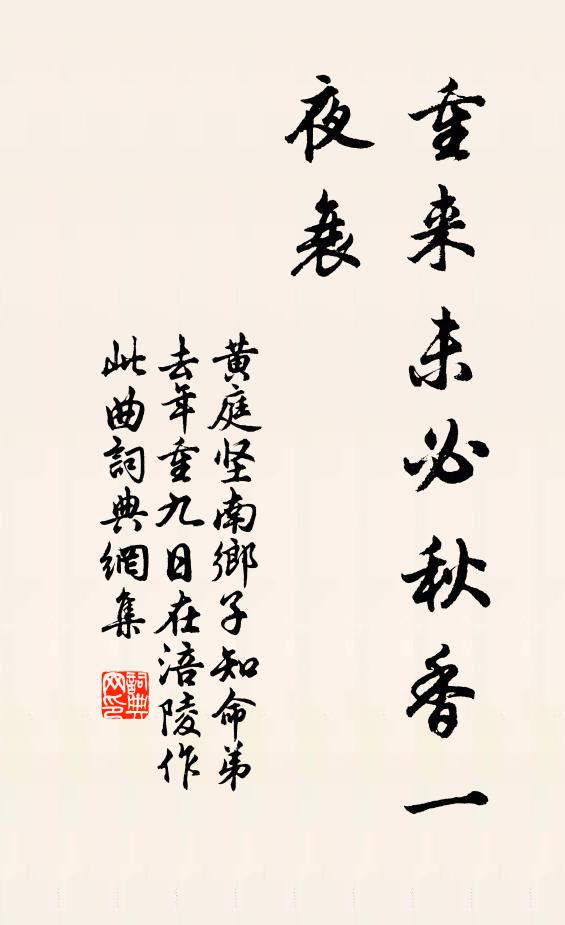 重来未必秋香一
夜衰
黄庭坚南鄉子知命弟
去年重九日在涪陵作
此曲詞典網集
詞典网印